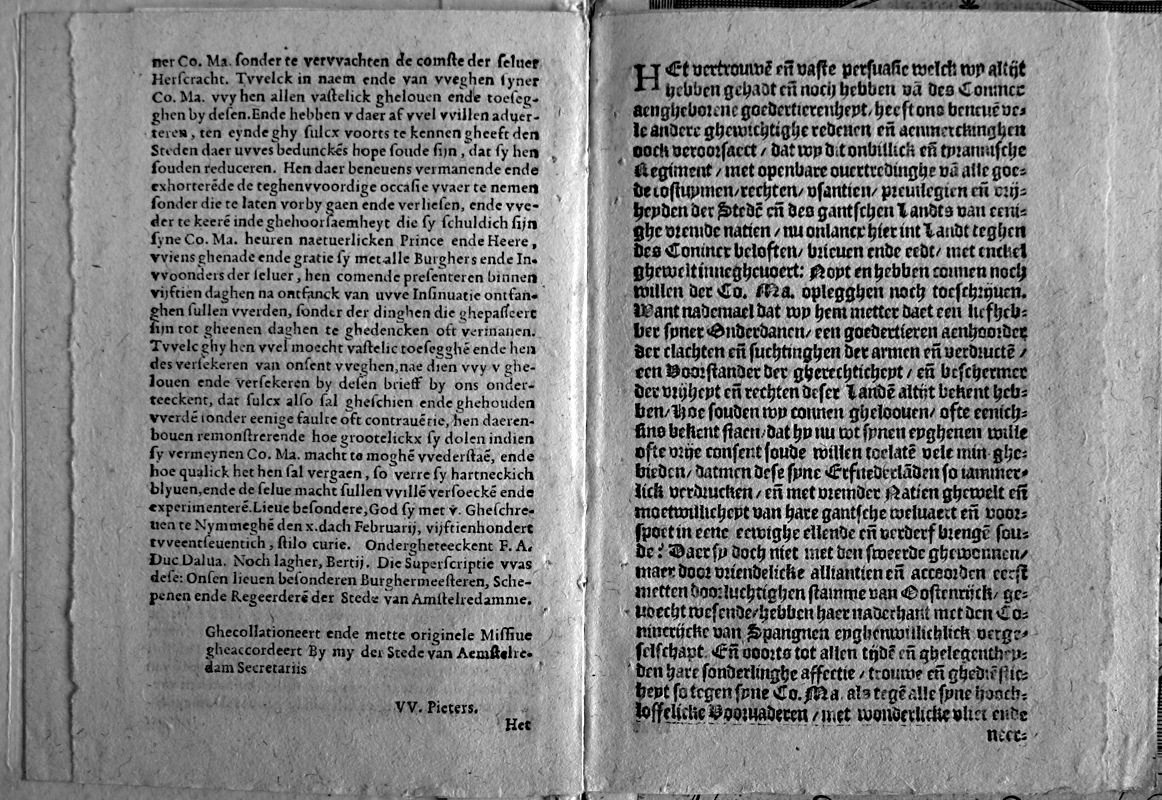 ner Co. Ma. ſonder te vervvachten de comſte der ſeluer
Herſcracht. Tvvelck in naem ende van vveghen ſyner
Co. Ma. vvy hen allen vaſtelick ghelouen ende toeſeg-
ghen by deſen. Ende hebben v daer af vvel vvillen aduer-
teren, ten eynde ghy ſulcx voorts te kennen gheeft den
Steden daer uvves bedunckēs hope ſoude ſijn, dat ſy hen
ſouden reduceren. Hen daer beneuens vermanende ende
exhorterēde de teghenvvoordige occaſie vvaer te nemen
ſonder die te laten vorby gaen ende verlieſen, ende vve-
der te keerē inde ghehoorſaemheyt die ſy ſchuldich ſijn
ſyne Co. Ma. heuren naetuerlicken Prince ende Heere,
vviens ghenade ende gratie ſy met alle Burghers ende In-
vvoonders der ſeluer, hen comende preſenteren binnen
vijftien daghen na ontfanck van uvve Inſinuatie ontfan-
ghen ſullen vverden, ſonder der dinghen die ghepaſſeert
ſijn tot gheenen daghen te ghedencken oft vermanen.
Tvvelc ghy hen vvel moecht vaſtelic toeſegghē ende hen
des verſekeren van onſent vveghen, nae dien vvy v ghe-
louen ende verſekeren by deſen brieff by ons onder-
teeckent, dat ſulcx alſo ſal gheſchien ende ghehouden
vverdē ſonder eenige faulte oft contrauētie, hen daeren-
bouen remonſtrerende hoe grootelickx ſy dolen indien
ſy vermeynen Co. Ma. macht te moghē vvederſtaē, ende
hoe qualick het hen ſal vergaen, ſo verre ſy hartneckich
blyuen, ende de ſelue macht ſullen vvillē verſoeckē ende
experimenterē. Lieue beſondere, God ſy met v. Gheſchre-
uen te Nymmeghē den x. dach Februarij, vijftienhondert
tvveentſeuentich, ſtilo curie. Ondergheteeckent F. A.
Duc Dalua. Noch lagher, Bertij. Die Superſcriptie vvas
deſe: Onſen lieuen beſonderen Burghermeeſteren, Sche-
penen ende Regeerderē der Stede van Amſtelredamme.
Ghecollationeert ende mette originele Miſſiue
gheaccordeert By my der Stede van Aemſtelre-
dam Secretariis
VV. Pieters.
Het
HEt vertrouwē eñ vaſte perſuaſie welck wy altijt
hebben gehadt eñ noch hebben vā des Conincx
aengheborene goedertierenheyt, heeft ons beneuē ve-
le andere ghewichtighe redenen eñ aenmerckinghen
oock veroorſaect / dat wy dit onbillick eñ tyranniſche
Regiment / met openbare ouertredinghe vā alle goe-
de coſtuymen / rechten / vſantien / preuilegien eñ vrij-
heyden der Stedē eñ des gantſchen Landts van eeni-
ghe vremde natien / nu onlancx hier int Landt teghen
des Conincx beloften / brieuen ende eedt / met enckel
ghewelt inneghevoert: Noyt en hebben connen noch
willen der Co. Ma. oplegghen noch toeſchrijuen.
Want nademael dat wy hem metter daet een liefheb-
ber ſyner Onderdanen / een goedertieren aenhoorder
der clachten eñ ſuchtinghen der armen eñ verdructē /
een Voorſtander der gherechticheyt / eñ beſchermer
der vrijheyt eñ rechten deſer Landē altijt bekent heb-
ben / Hoe ſouden wy connen ghelooven / ofte eenich-
ſins bekent ſtaen / dat hy nu wt ſynen eyghenen wille
ofte vrije conſent ſoude willen toelatē vele min ghe-
bieden / datmen deſe ſyne Erfnederlādē ſo iammer-
lick verdrucken / eñ met vremder Natien ghewelt eñ
moetwillicheyt van hare gantſche weluaert eñ voor-
ſpoet in eene eewighe ellende eñ verderf brengē ſou-
de? Daer ſy doch niet met den ſweerde ghewonnen /
maer door vriendelicke alliantien eñ accoorden eerſt
metten doorluchtighen ſtamme van Ooſtenrijck / ge-
voecht weſende / hebben haer naderhant met den Co-
nincrijcke van Spangnen eyghenwillichlick verge-
ſelſchapt. Eñ voorts tot allen tijdē eñ ghelegenthey-
den hare ſonderlinghe affectie / trouwe eñ ghediēſtic-
heyt ſo tegen ſyne Co. Ma. als tegē alle ſyne hooch-
loffelicke Vooruaderen / met wonderlicke vliet ende
neer-